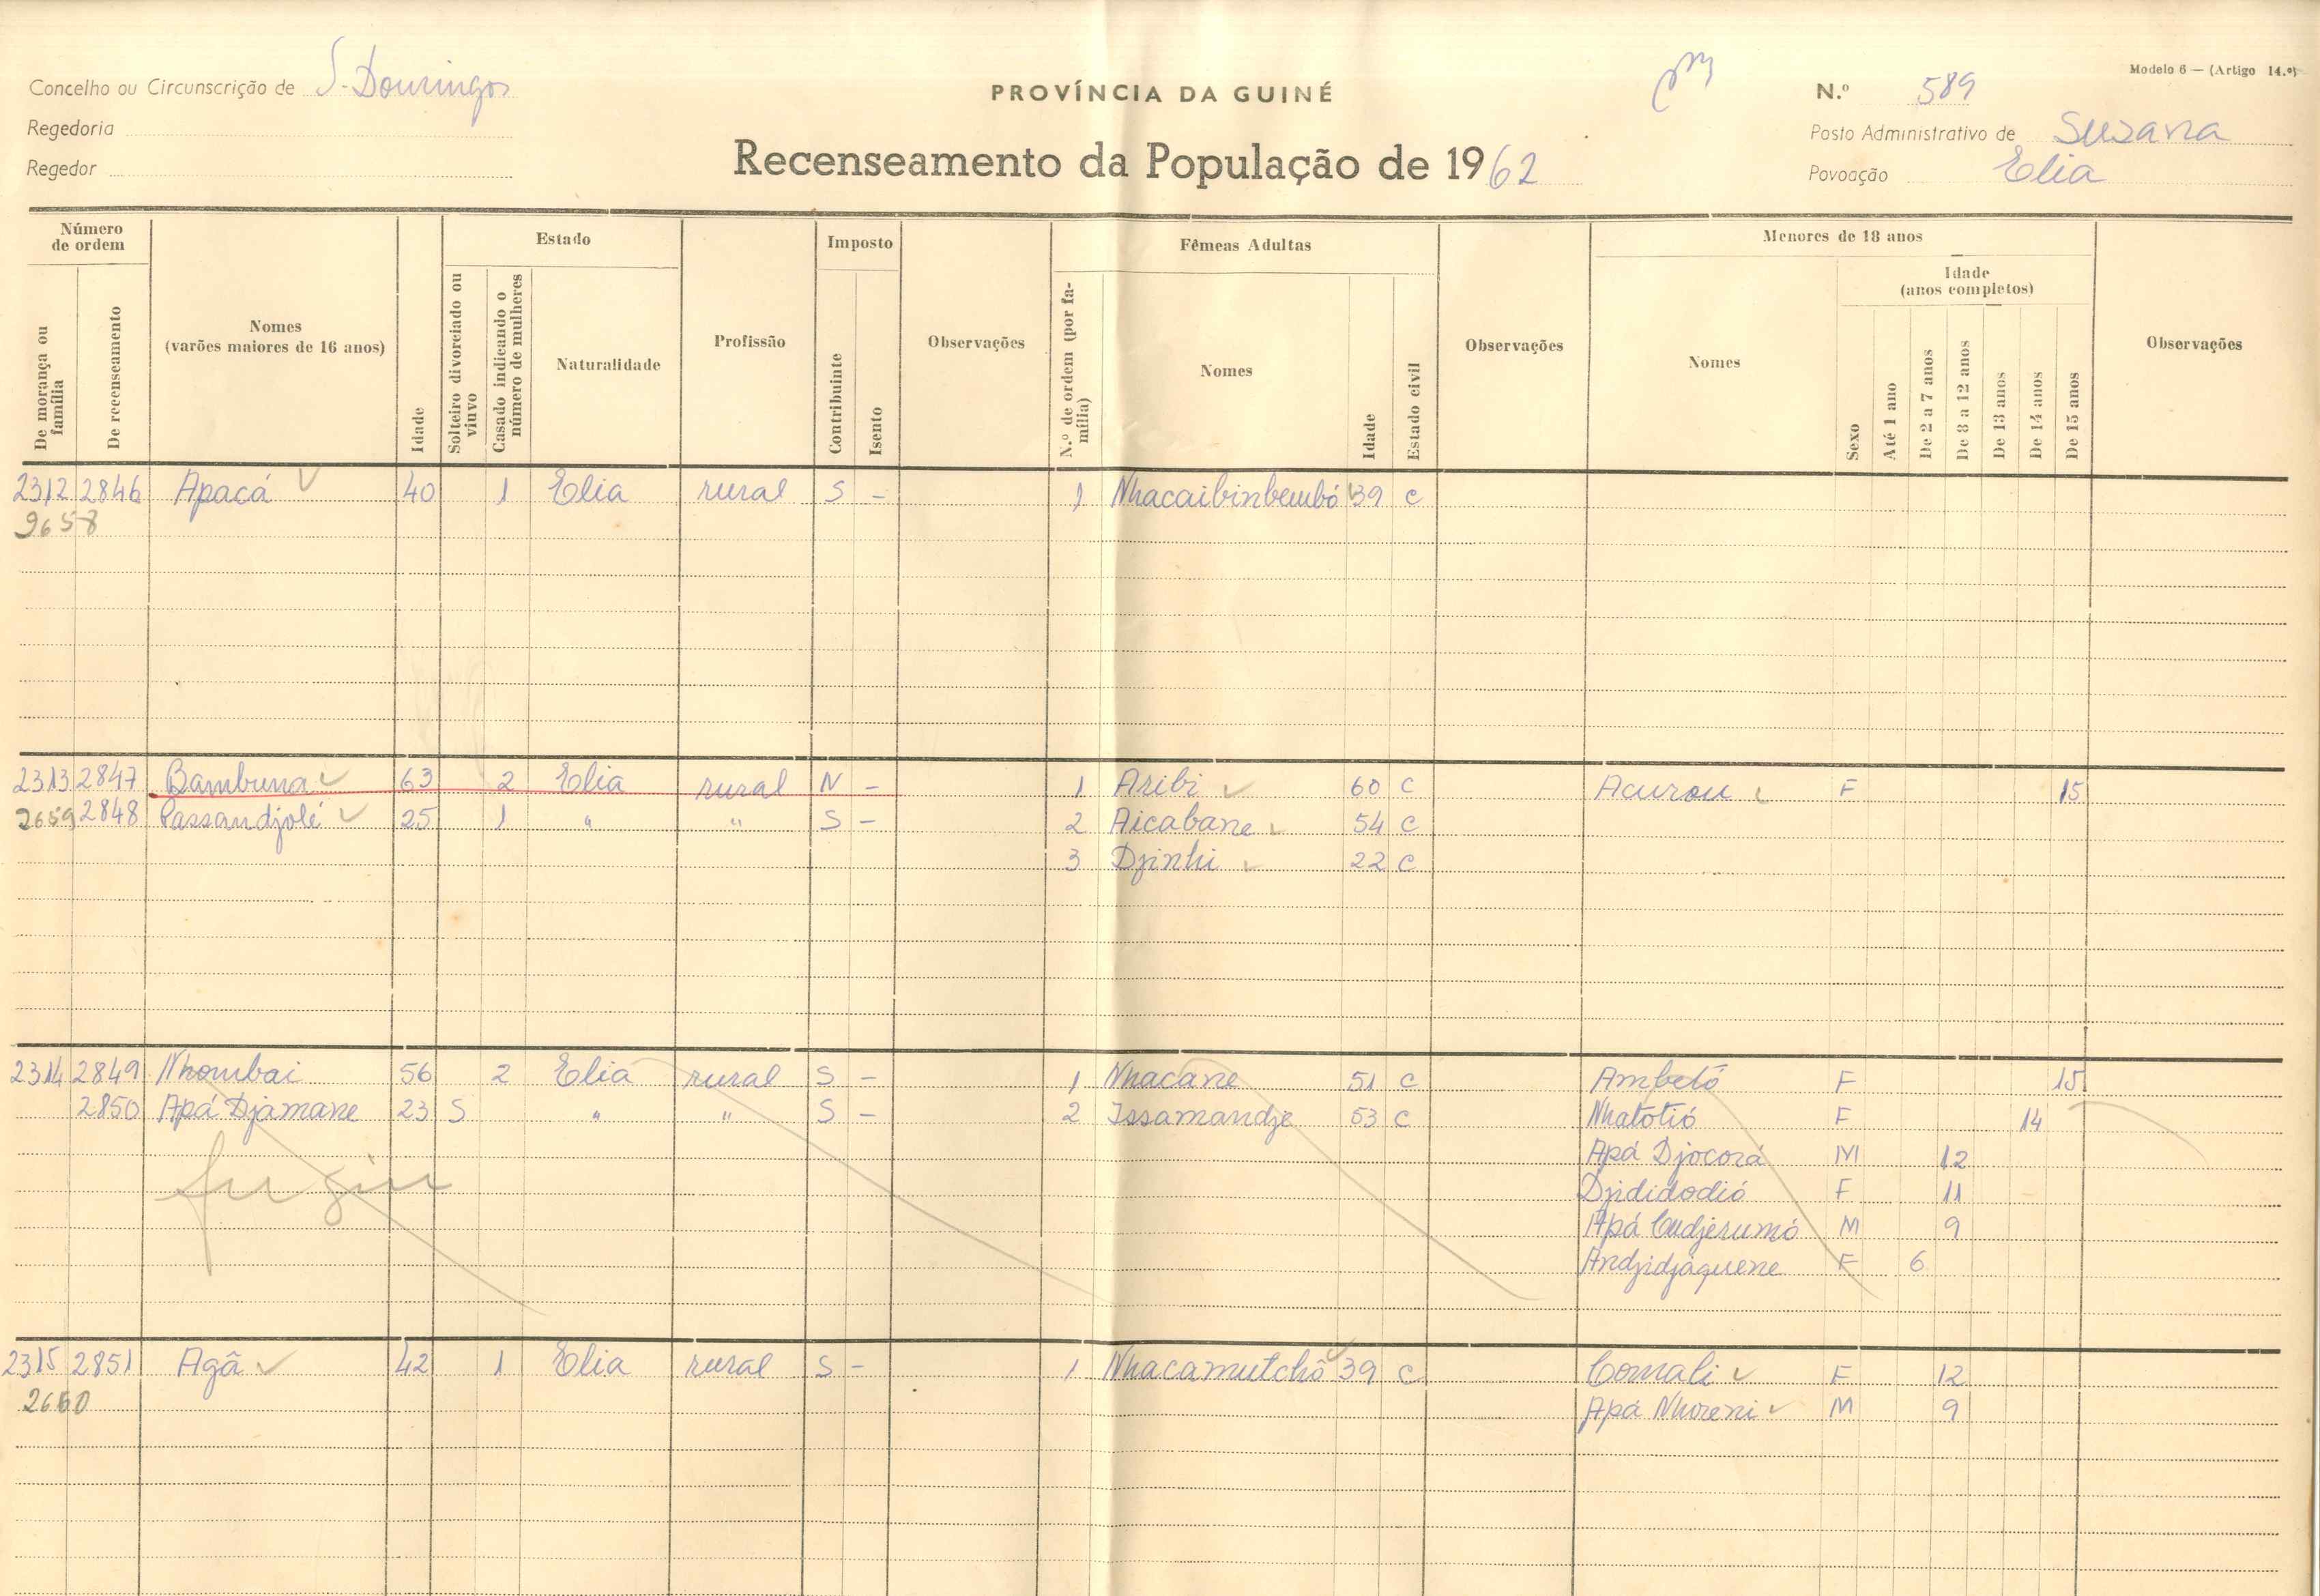 Modelo 6 — (Artigo 14.º)
Concelho ou Circunscrição de S. Domingos
PROVÍNCIA DA GUINÉ
N.º 589
Regedoria
Posto Administrativo de Suzana
Regedor
Recenseamento da População de 1962
Povoação Elia
Número de ordem
Estado
Imposto
Fêmeas Adultas
Menores de 18 anos
Idade (anos completos)
De morança ou família
De recenseamento
Nomes (varões maiores de 16 anos)
Idade
Solteiro divorciado ou viuvo
Casado indicando o número de mulheres
Naturalidade
Profissão
Contribuinte
Isento
Observações
N.º de ordem (por família)
Nomes
Idade
Estado civil
Observações
Nomes
Sexo
Até 1 ano
De 2 a 7 anos
De 8 a 12 anos
De 13 anos
De 14 anos
De 15 anos
Observações
2312 2846 Apacá 40 1 Elia rural S - 1 Nhacaibinbembó 39 C
9658
2313 2847 Bambuna 63 2 Elia rural N - 1 Aribi 60 C Acurou F 15
2659 2848 Passandjolé 25 1 " " S - 2 Aicabane 54 C
3 Djinhi 22 C
2314 2849 Nhombai 56 2 Elia rural S - 1 Nhacane 51 C Ambetó F 15
2850 Apá Djamane 23 S " " S - 2 Issamandje 53 C Nhatotió F 14
Apá Djocorá M 12
fugiu Djididodió F 11
Apá Cudjerumó M 9
Andjidjaquene F 6
2315 2851 Agã 42 1 Elia rural S - 1 Nhacamutchô 39 C Comali F 12
2660 Apá Nhoreni M 9